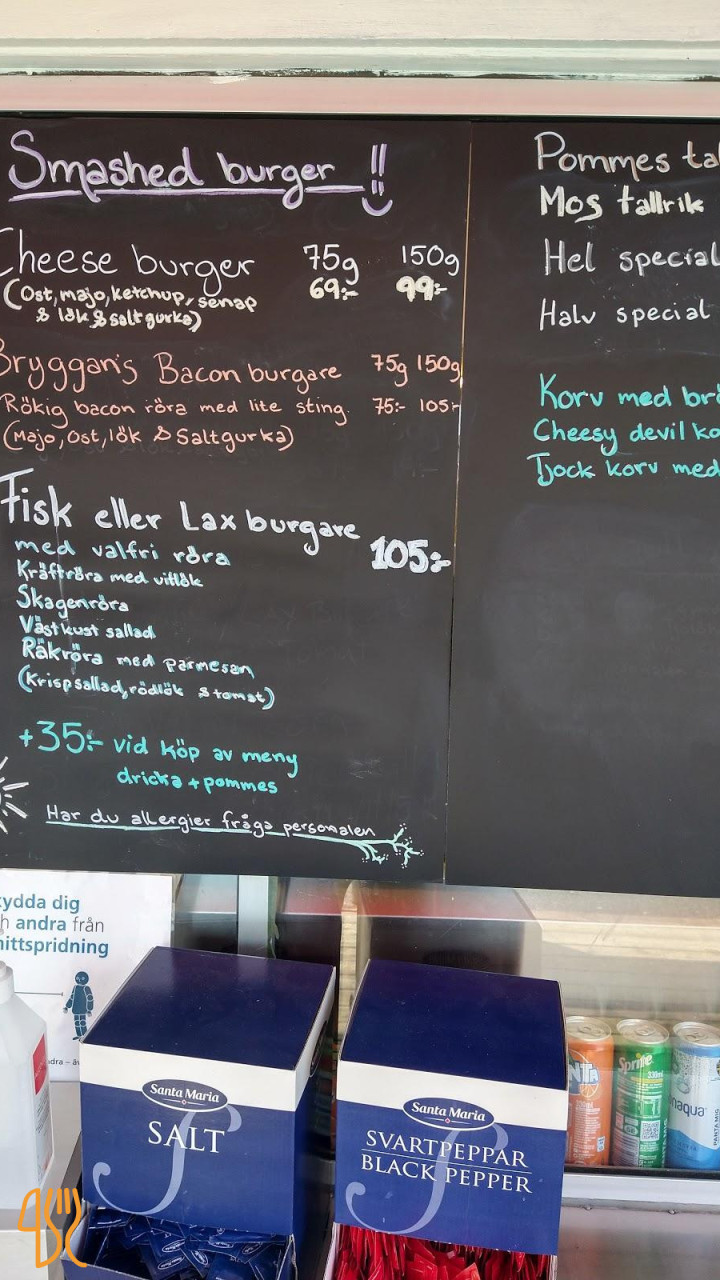 Smashed burger !!
Cheese burger 75g 150g
(Ost, majo, ketchup, senap 69:- 99:-
& lök & saltgurka)
Bryggan's Bacon burgare 75g 150g
Rökig bacon röra med lite sting. 75:- 105:-
(Majo, ost, lök & Saltgurka)
Fisk eller Lax burgare
med valfri röra 105:-
Kräftröra med vitlök
Skagenröra
Västkust sallad
Räkröra med parmesan
(Krispsallad, rödlök & tomat)
+35:- vid köp av meny
dricka + pommes
Har du allergier fråga personalen
Pommes tal
Mos tallrik
Hel special
Halv special
Korv med br
Cheesy devil ko
Tjock korv med
ydda dig
h andra från
ittspridning
Santa Maria
SALT
Santa Maria
SVARTPEPPAR
BLACK PEPPER
NTA
Sprite
330ml
naqua